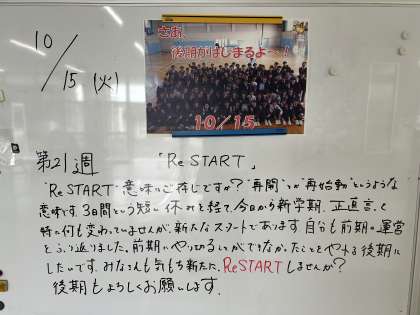 10/15(火)
さあ、
後期がはじまるよ〜!
10/15
第21週 「Re START」
"Re START"意味はご存じですか?"再開"とか"再始動"というような
意味です。3日間という短い休みを経て、今日から新学期。正直言うと
特に何も変わっていませんが、新たなスタートであります。自分も前期の運営
をふり返りました。前期にやり切ることができなかったことをやれる後期に
したいです。みなさんも気もち新たに、Re STARTしませんか?
後期もよろしくお願いします。